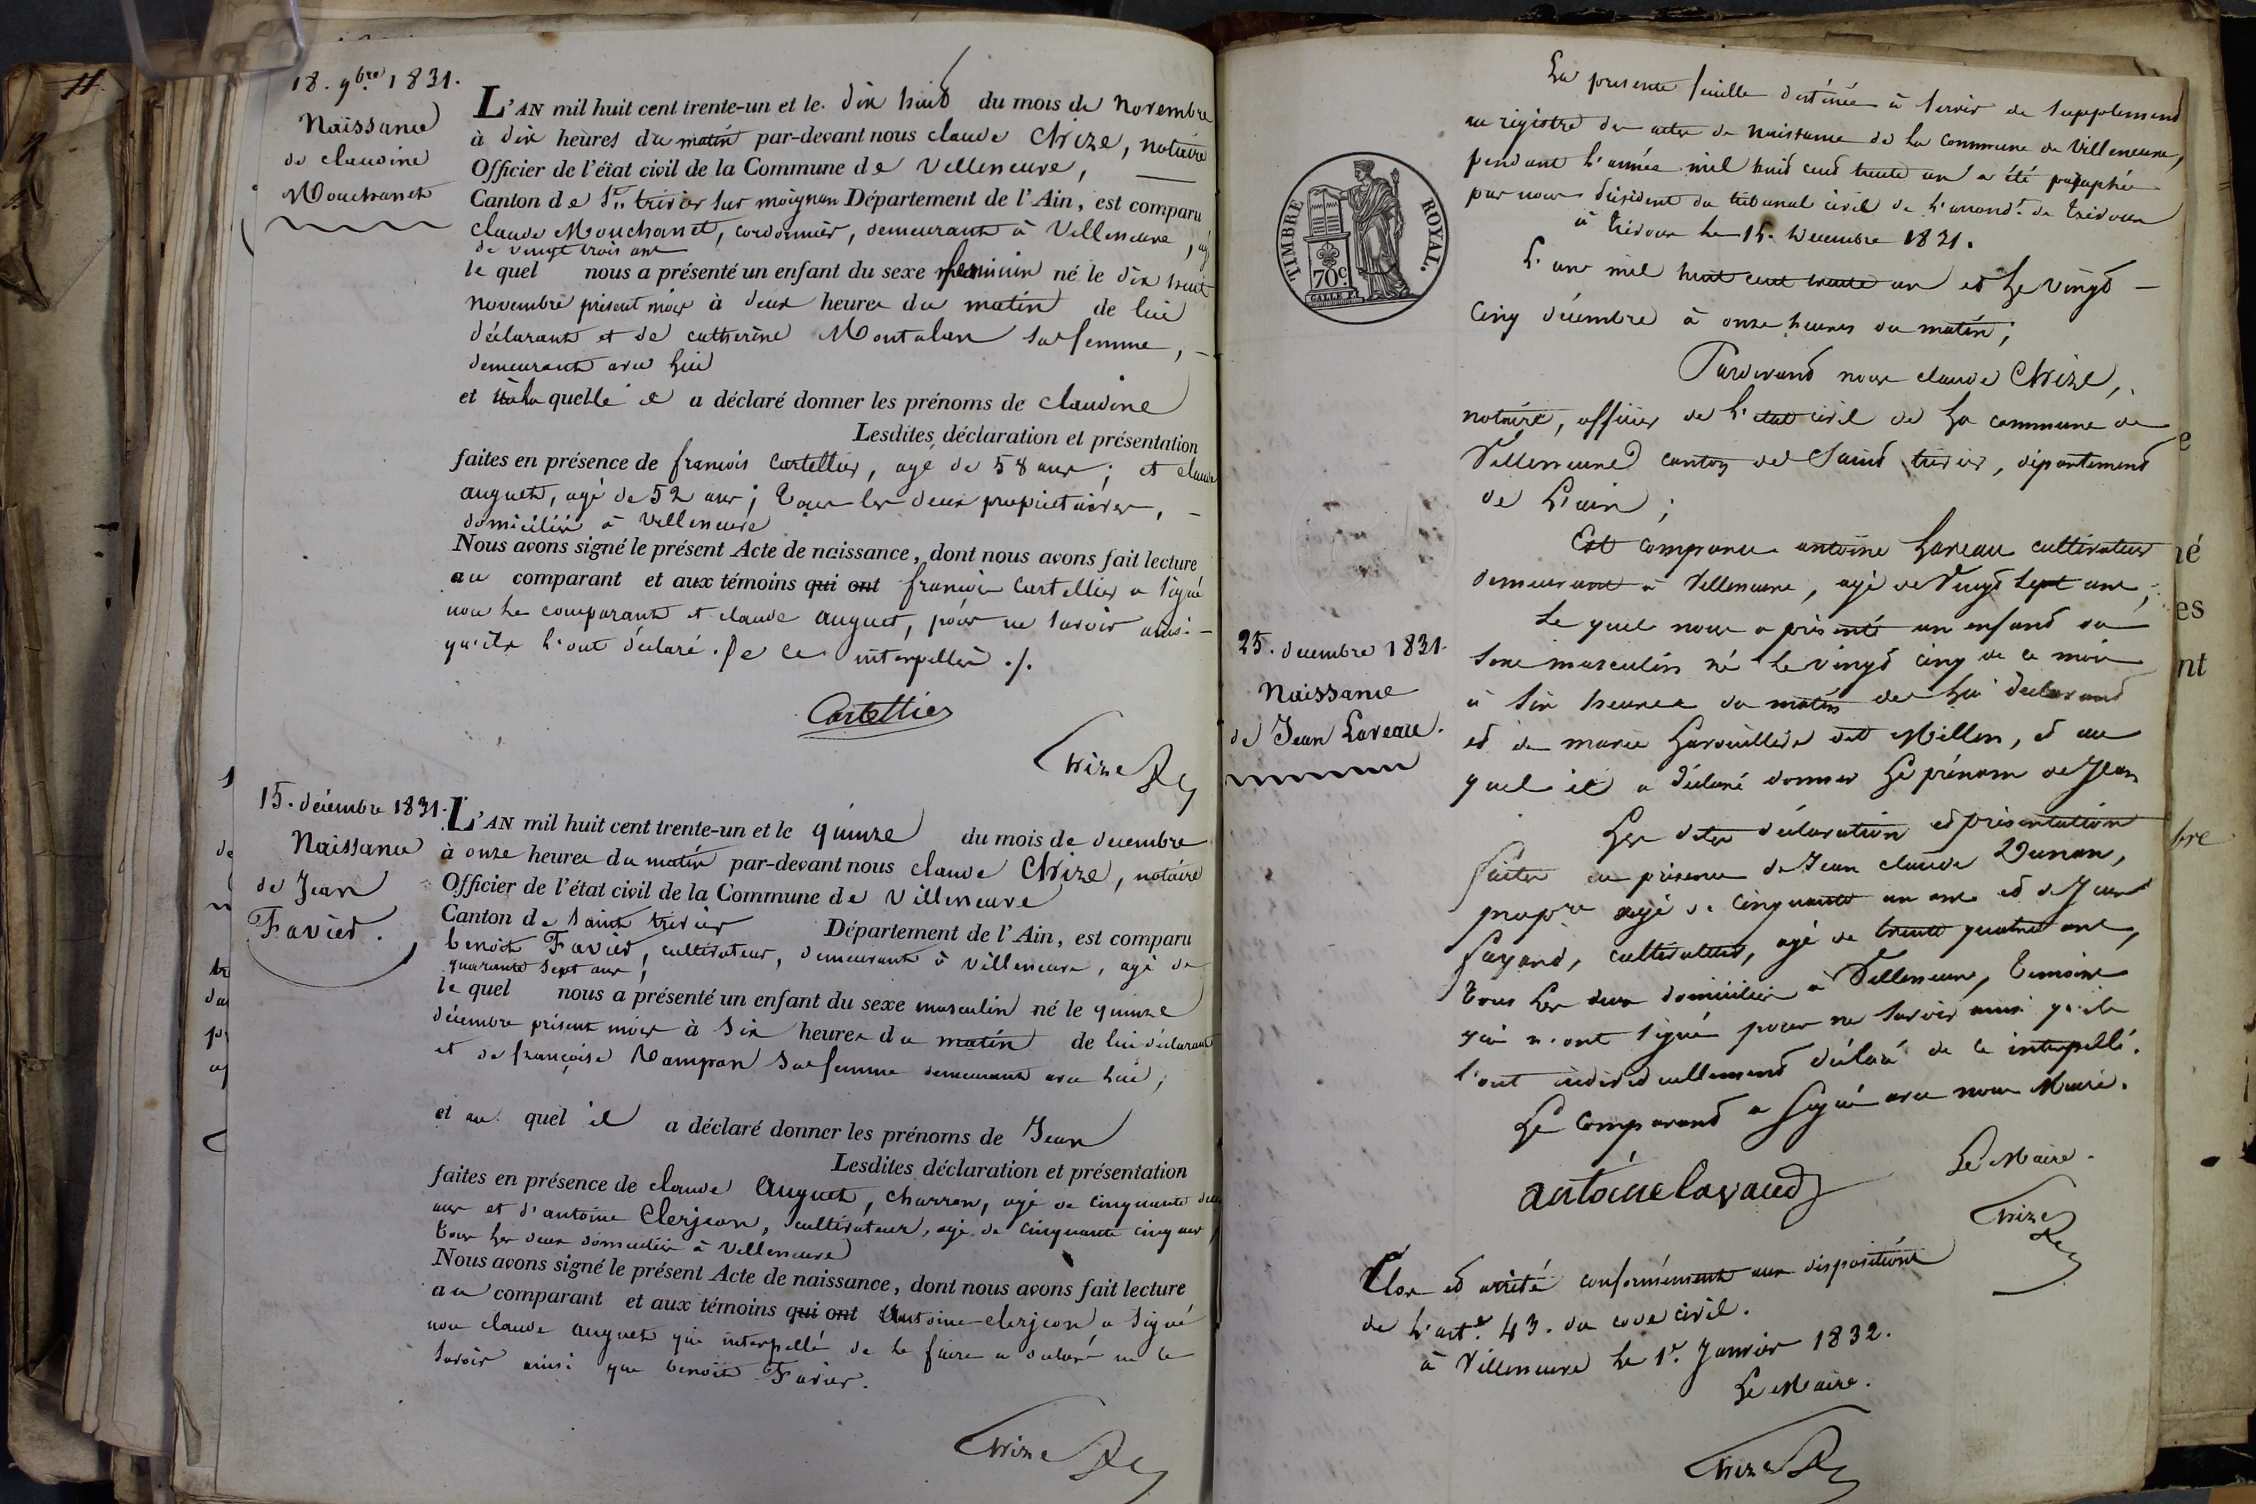 18. 9bre 1831.
Naissance
de claudine
Mouchanet
L'AN mil huit cent trente-un et le dix huit du mois de novembre
à dix heures du matin par-devant nous claude Chize, notaire
Officier de l'état civil de la Commune de Villeneuve,
Canton de St. trivier sur moignan Département de l'Ain, est comparu
claude Mouchanet, cordonnier, demeurant à Villeneuve, agé
de vingt trois ans
le quel nous a présenté un enfant du sexe feminin né le dix huit
novembre present mois à deux heures du matin de lui
déclarant et de catherine Montalan sa femme,
demeurant avec lui
et à la quelle il a déclaré donner les prénoms de claudine
Lesdites déclaration et présentation
faites en présence de francois Cartellier, agé de 58 ans; et claude
auguet, agé de 52 ans; tous les deux proprietaires,
domiciliés à Villeneuve
Nous avons signé le présent Acte de naissance, dont nous avons fait lecture
au comparant et aux témoins qui ont francois Cartellier a signé
non le comparant et claude auguet, pour ne savoir ainsi
qu'ils l'ont déclaré. de ce interpellés ./.
Cartellier
Chize
15. décembre 1831.
Naissance
de Jean
Favier.
L'AN mil huit cent trente-un et le quinze du mois de decembre
à onze heures du matin par-devant nous claude Chize, notaire
Officier de l'état civil de la Commune de Villeneuve
Canton de saint trivier Département de l'Ain, est comparu
benoit Favier, cultivateur, demeurant à Villeneuve, agé de
quarante sept ans;
le quel nous a présenté un enfant du sexe masculin né le quinze
décembre présent mois à six heures du matin de lui déclarant
et de françoise Rampon sa femme demeurant avec lui;
et au quel il a déclaré donner les prénoms de Jean
Lesdites déclaration et présentation
faites en présence de claude Auguet, charron, agé de cinquante deux
ans et d'antoine Clerjeon, cultivateur, agé de cinquante cinq ans,
tous les deux domiciliés à Villeneuve
Nous avons signé le présent Acte de naissance, dont nous avons fait lecture
au comparant et aux témoins qui ont Antoine clerjeon a signé
non claude auguet qui interpellé de le faire a déclaré ne le
savoir ainsi que benoit Favier.
Chize
La presente feuille destinée à servir de supplement
au registre des actes de naissance de la commune de Villeneuve,
pendant l'année mil huit cent trente un a été paraphée
par nous Président du tribunal civil de l'arrondt. de Trévoux
à Trévoux le 15. Decembre 1831.
TIMBRE ROYAL.
70c.
L'an mil huit cent trente un et le vingt
cinq décembre à onze heures du matin;
Pardevant nous claude Chize,
notaire, officier de l'etat civil de la commune de
Villeneuve canton de Saint trivier, département
de l'ain;
25. decembre 1831.
Naissance
de Jean Laveau.
Est comparu antoine Laveau cultivateur
demeurant à Villeneuve, agé de Vingt sept ans,
Le quel nous a présenté un enfant du
sexe masculin né le vingt cinq de ce mois
à six heures du matin de lui declarant
et de marie Larouillere dit Millon, et au
quel il a déclaré donner le prénom de Jean
Les dites déclaration et présentation
faites en présence de Jean claude Dunan,
propre agé de cinquante un ans et de Jean
fayard, cultivateur, agé de trente quatre ans,
tous les deux domiciliés à Villeneuve, temoins
qui n'ont signé pour ne savoir ainsi qu'ils
l'ont individuellement déclaré de ce interpellé.
Le comparant a signé avec nous Maire.
Le Maire.
antoine lavaud
Chize
Clos et arrêté conformément aux dispositions
de l'arte. 43. du code civil.
à Villeneuve le 1er. Janvier 1832.
Le Maire.
Chize